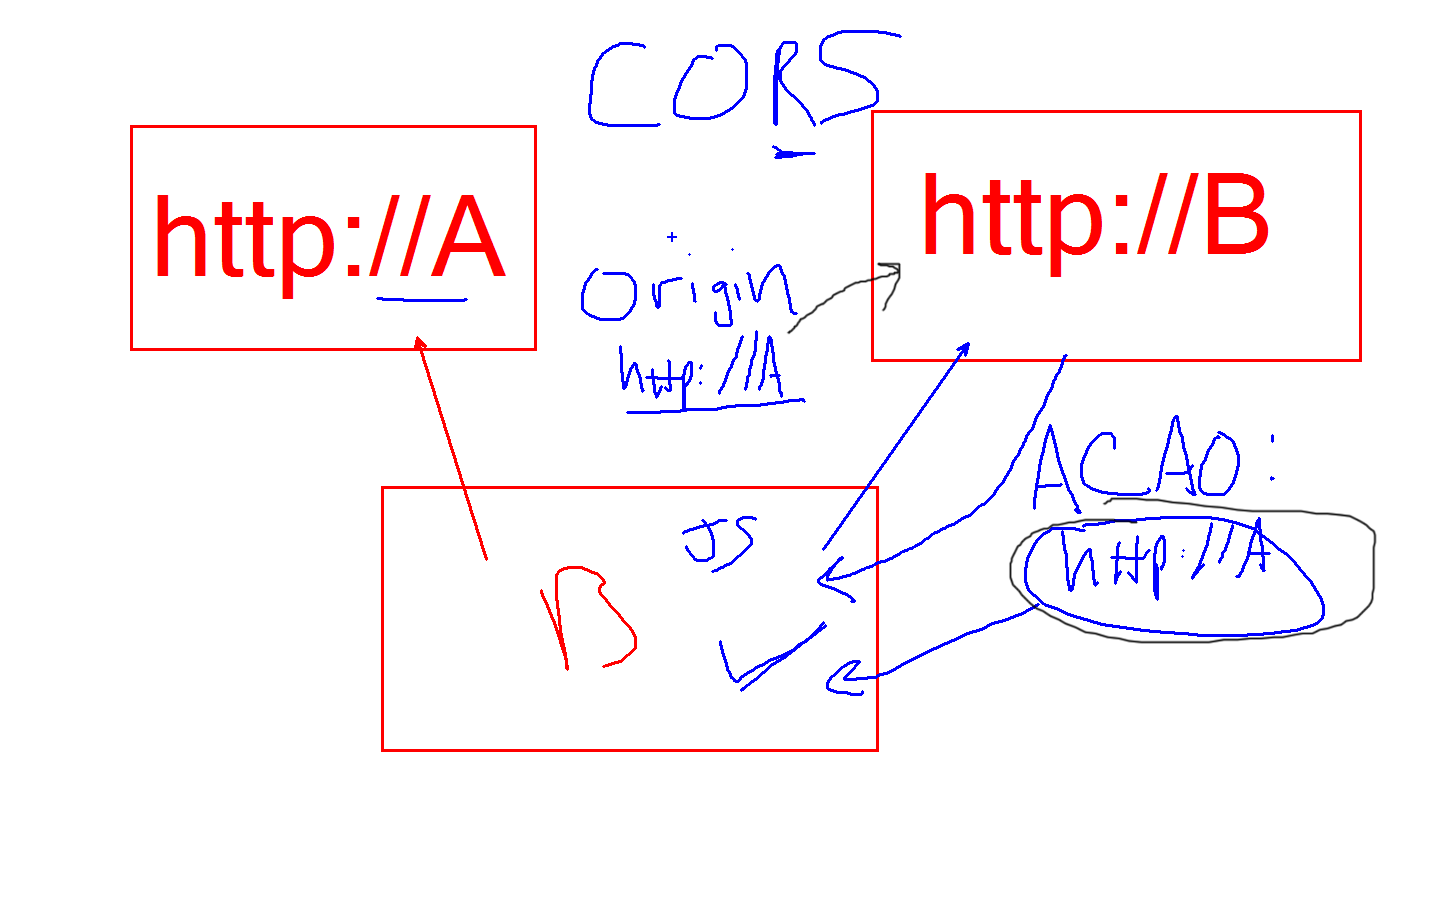 CORS
http://A
http://B
Origin
http://A
ACAO:
http://A
JS
B